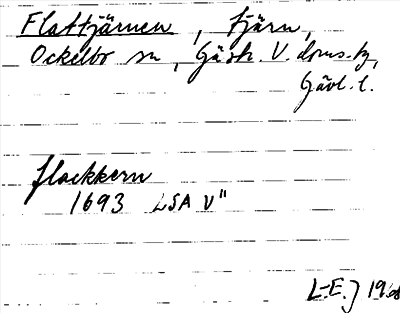 Flattjärnen, tjärn,
Ockelbo sn, Gästr. V. doms.,
Gävl. l.
flackkern
1693 LSA V"
L-E.J 1968